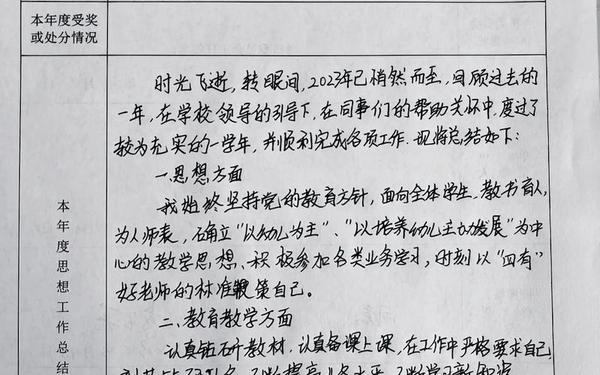 本年度受奖
或处分情况
时光飞逝,转眼间,2023年已悄然而至,回顾过去的
一年,在学校领导的引导下,在同事们的帮助关怀中,度过了
较为充实的一学年,并顺利完成各项工作.现将总结如下:
一.思想方面
我始终坚持党的教育方针,面向全体学生.教书育人,
为人师表,确立“以幼儿为主”、“以培养幼儿主动发展”为中
心的教学思想、积极参加各类业务学习,时刻以“四有”
好老师的标准 策自己。
二、教育教学方面
认真钻研教材.认真备课上课,在工作中严格要求自己
本年度思想工作总结